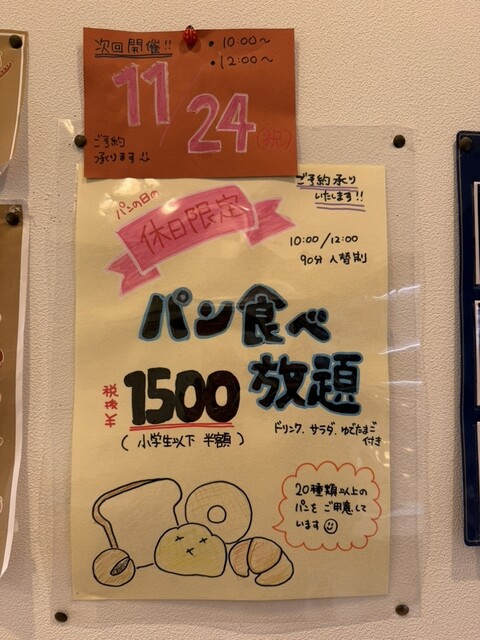 次回開催!!
・10:00〜
・12:00〜
11
24(祝)
ご予約
承ります
ご予約承り
いたします!!
パンの日の
休日限定
10:00/12:00
90分 入替制
パン食べ
放題
税抜¥1500
(小学生以下 半額)
ドリンク、サラダ、ゆでたまご
付き
20種類以上の
パンをご用意して
います